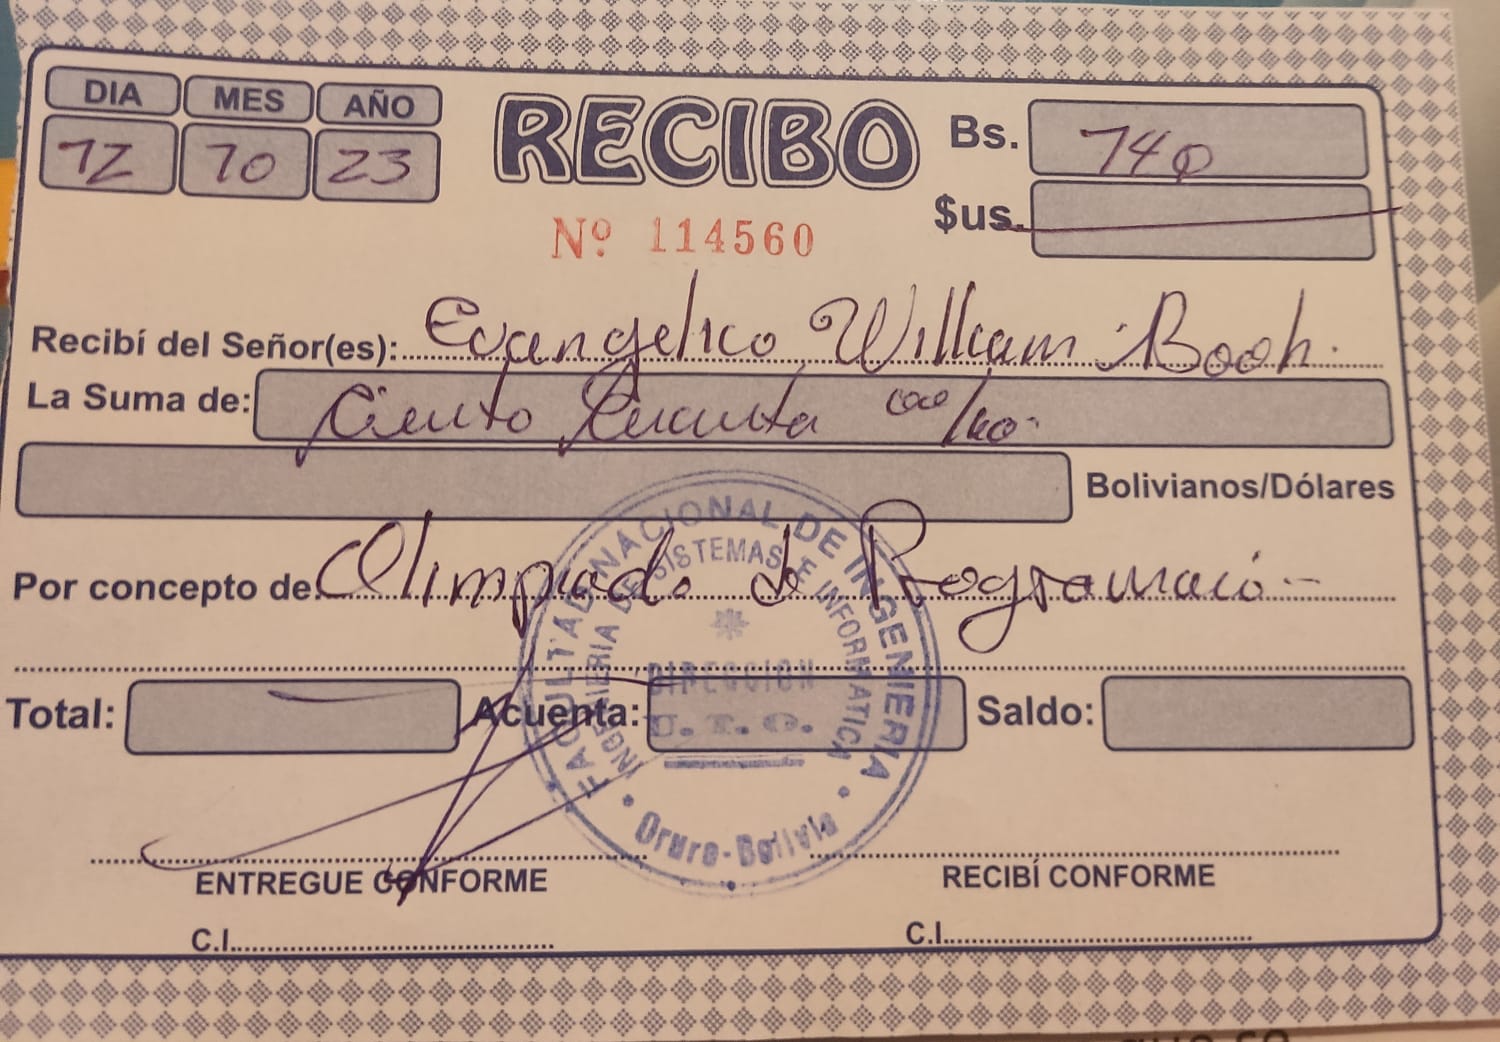 DIA MES AÑO
12 10 23
RECIBO
Nº 114560
Bs. 140
$us.
Recibí del Señor(es): Evangelico William Booh.
La Suma de: Ciento Cuarenta 00/100
Bolivianos/Dólares
Por concepto de: Olimpiada de Programació
Total: Acuenta: Saldo:
FACULTAD NACIONAL DE INGENIERIA
INGENIERIA DE SISTEMAS E INFORMATICA
DIRECCION
U. T. O.
Oruro - Bolivia
ENTREGUE CONFORME
RECIBÍ CONFORME
C.I.
C.I.